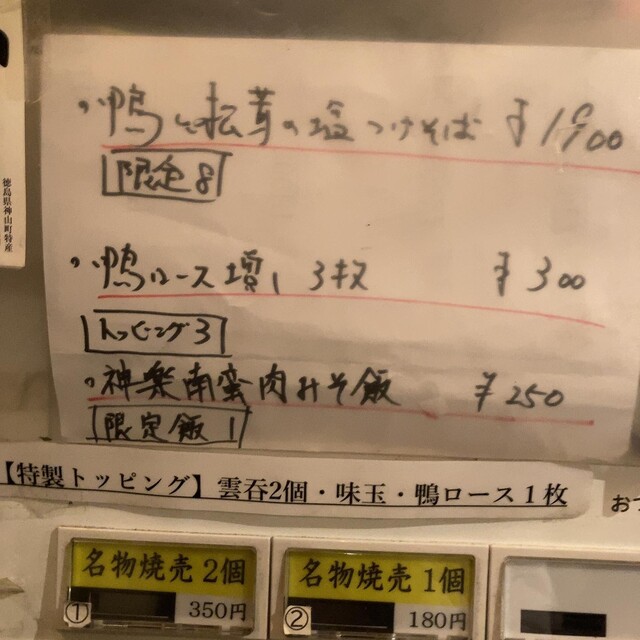 鴨と松茸の塩つけそば ¥1900
限定8
鴨ロース増し 3枚 ¥300
トッピング3
神楽南蛮肉みそ飯 ¥250
限定飯1
【特製トッピング】雲呑2個・味玉・鴨ロース1枚
おつ
名物焼売2個
① 350円
名物焼売1個
② 180円
徳島県神山町特産